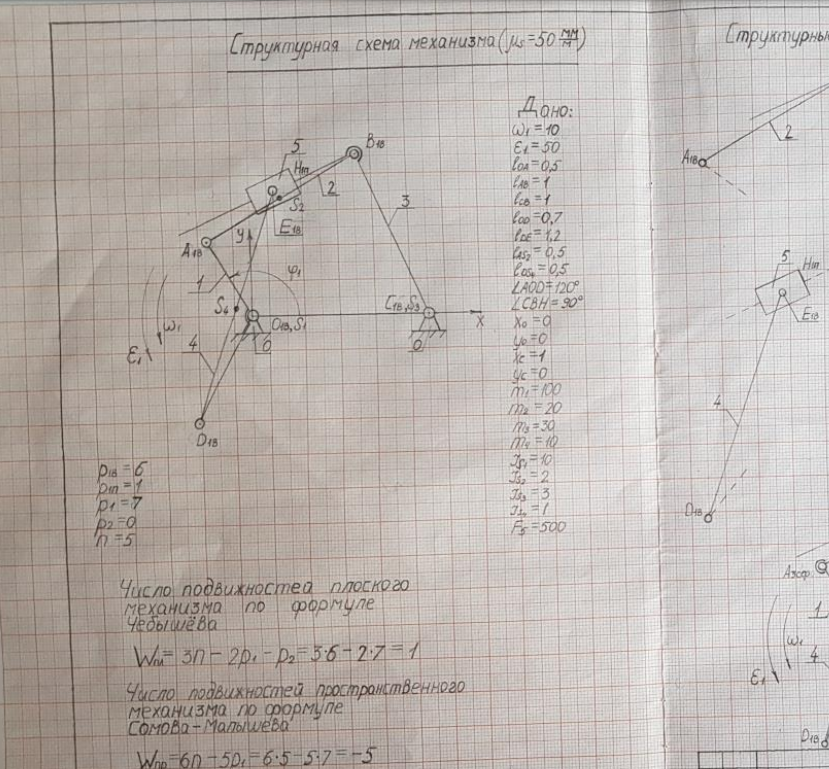 Структурная схема механизма (μs=50 мм/м)
Структурны
Дано:
ω₁=10
ε₁=50
lOA=0,5
lAB=1
lCB=1
lOD=0,7
lDE=1,2
lAS₂=0,5
lDS₄=0,5
∠AOD=120°
∠CBH=90°
x₀=0
y₀=0
xc=1
yc=0
m₁=100
m₂=20
m₃=30
m₄=10
Js₁=10
Js₂=2
Js₃=3
Js₄=1
F₅=500
B1в
5
H1п
2
S₂
E1в
3
A1в
y
1
φ₁
S₄
O1в,S₁
C1в,S₃
x
ω₁
ε₁
4
6
0
D1в
p1в=6
p1п=1
p₁=7
p₂=0
n=5
Число подвижностей плоского
механизма по формуле
Чебышёва
Wпл=3n-2p₁-p₂=3·5-2·7=1
Число подвижностей пространственного
механизма по формуле
Сомова-Малышева
Wпр=6n-5p₁=6·5-5·7=-5
A1в
2
5
H1п
E1в
4
D1в
A3сф
1
ω₁
ε₁
4
D1в